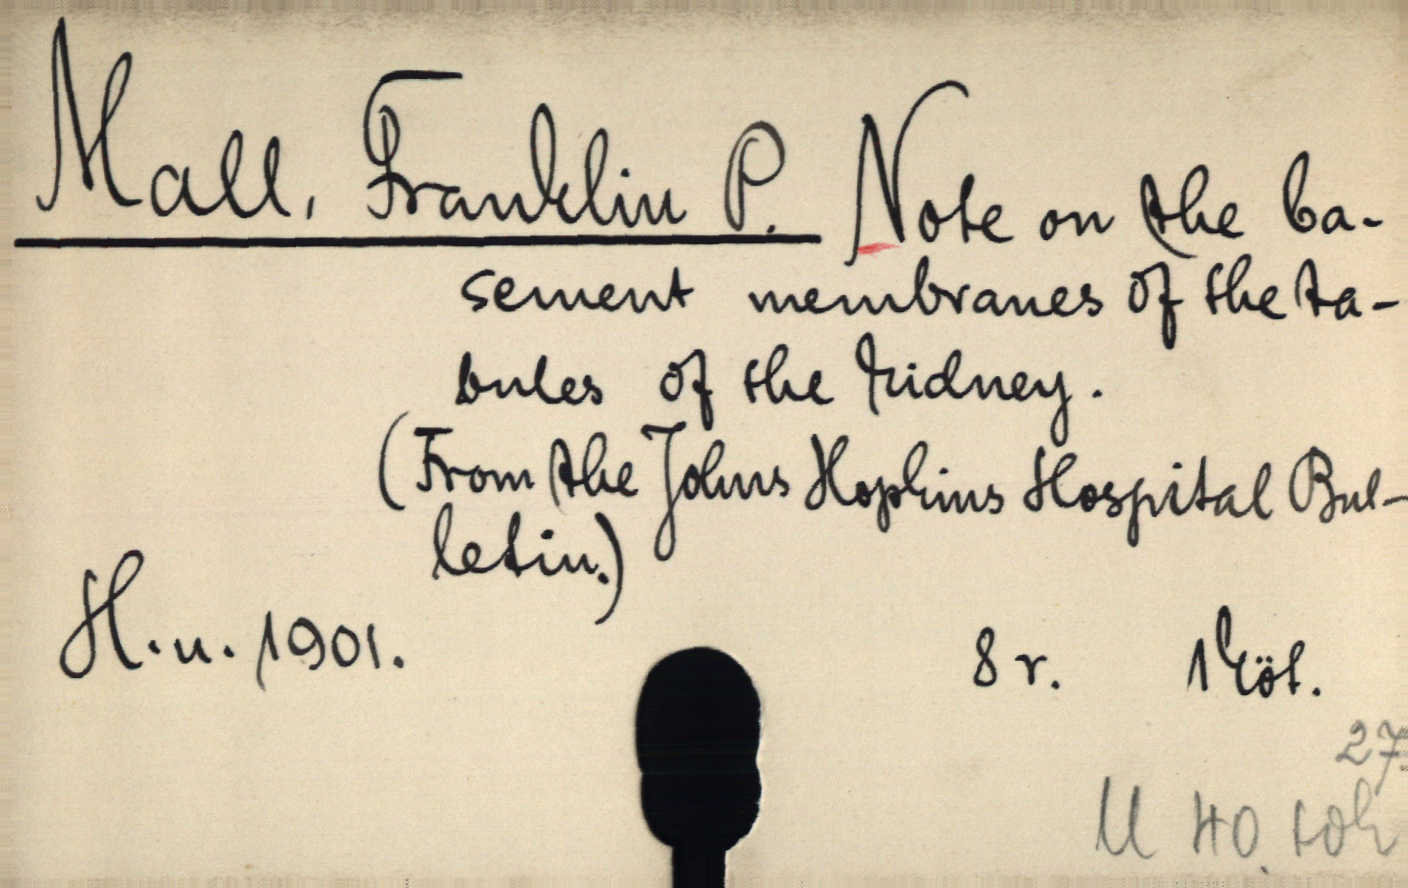 Mall, Franklin P. Note on the ba-
sement membranes of the ta-
bules of the kidney.
(From the Johns Hopkins Hospital Bul-
letin.)
H. n. 1901. 8 r. 1 köt.
27
U 40.